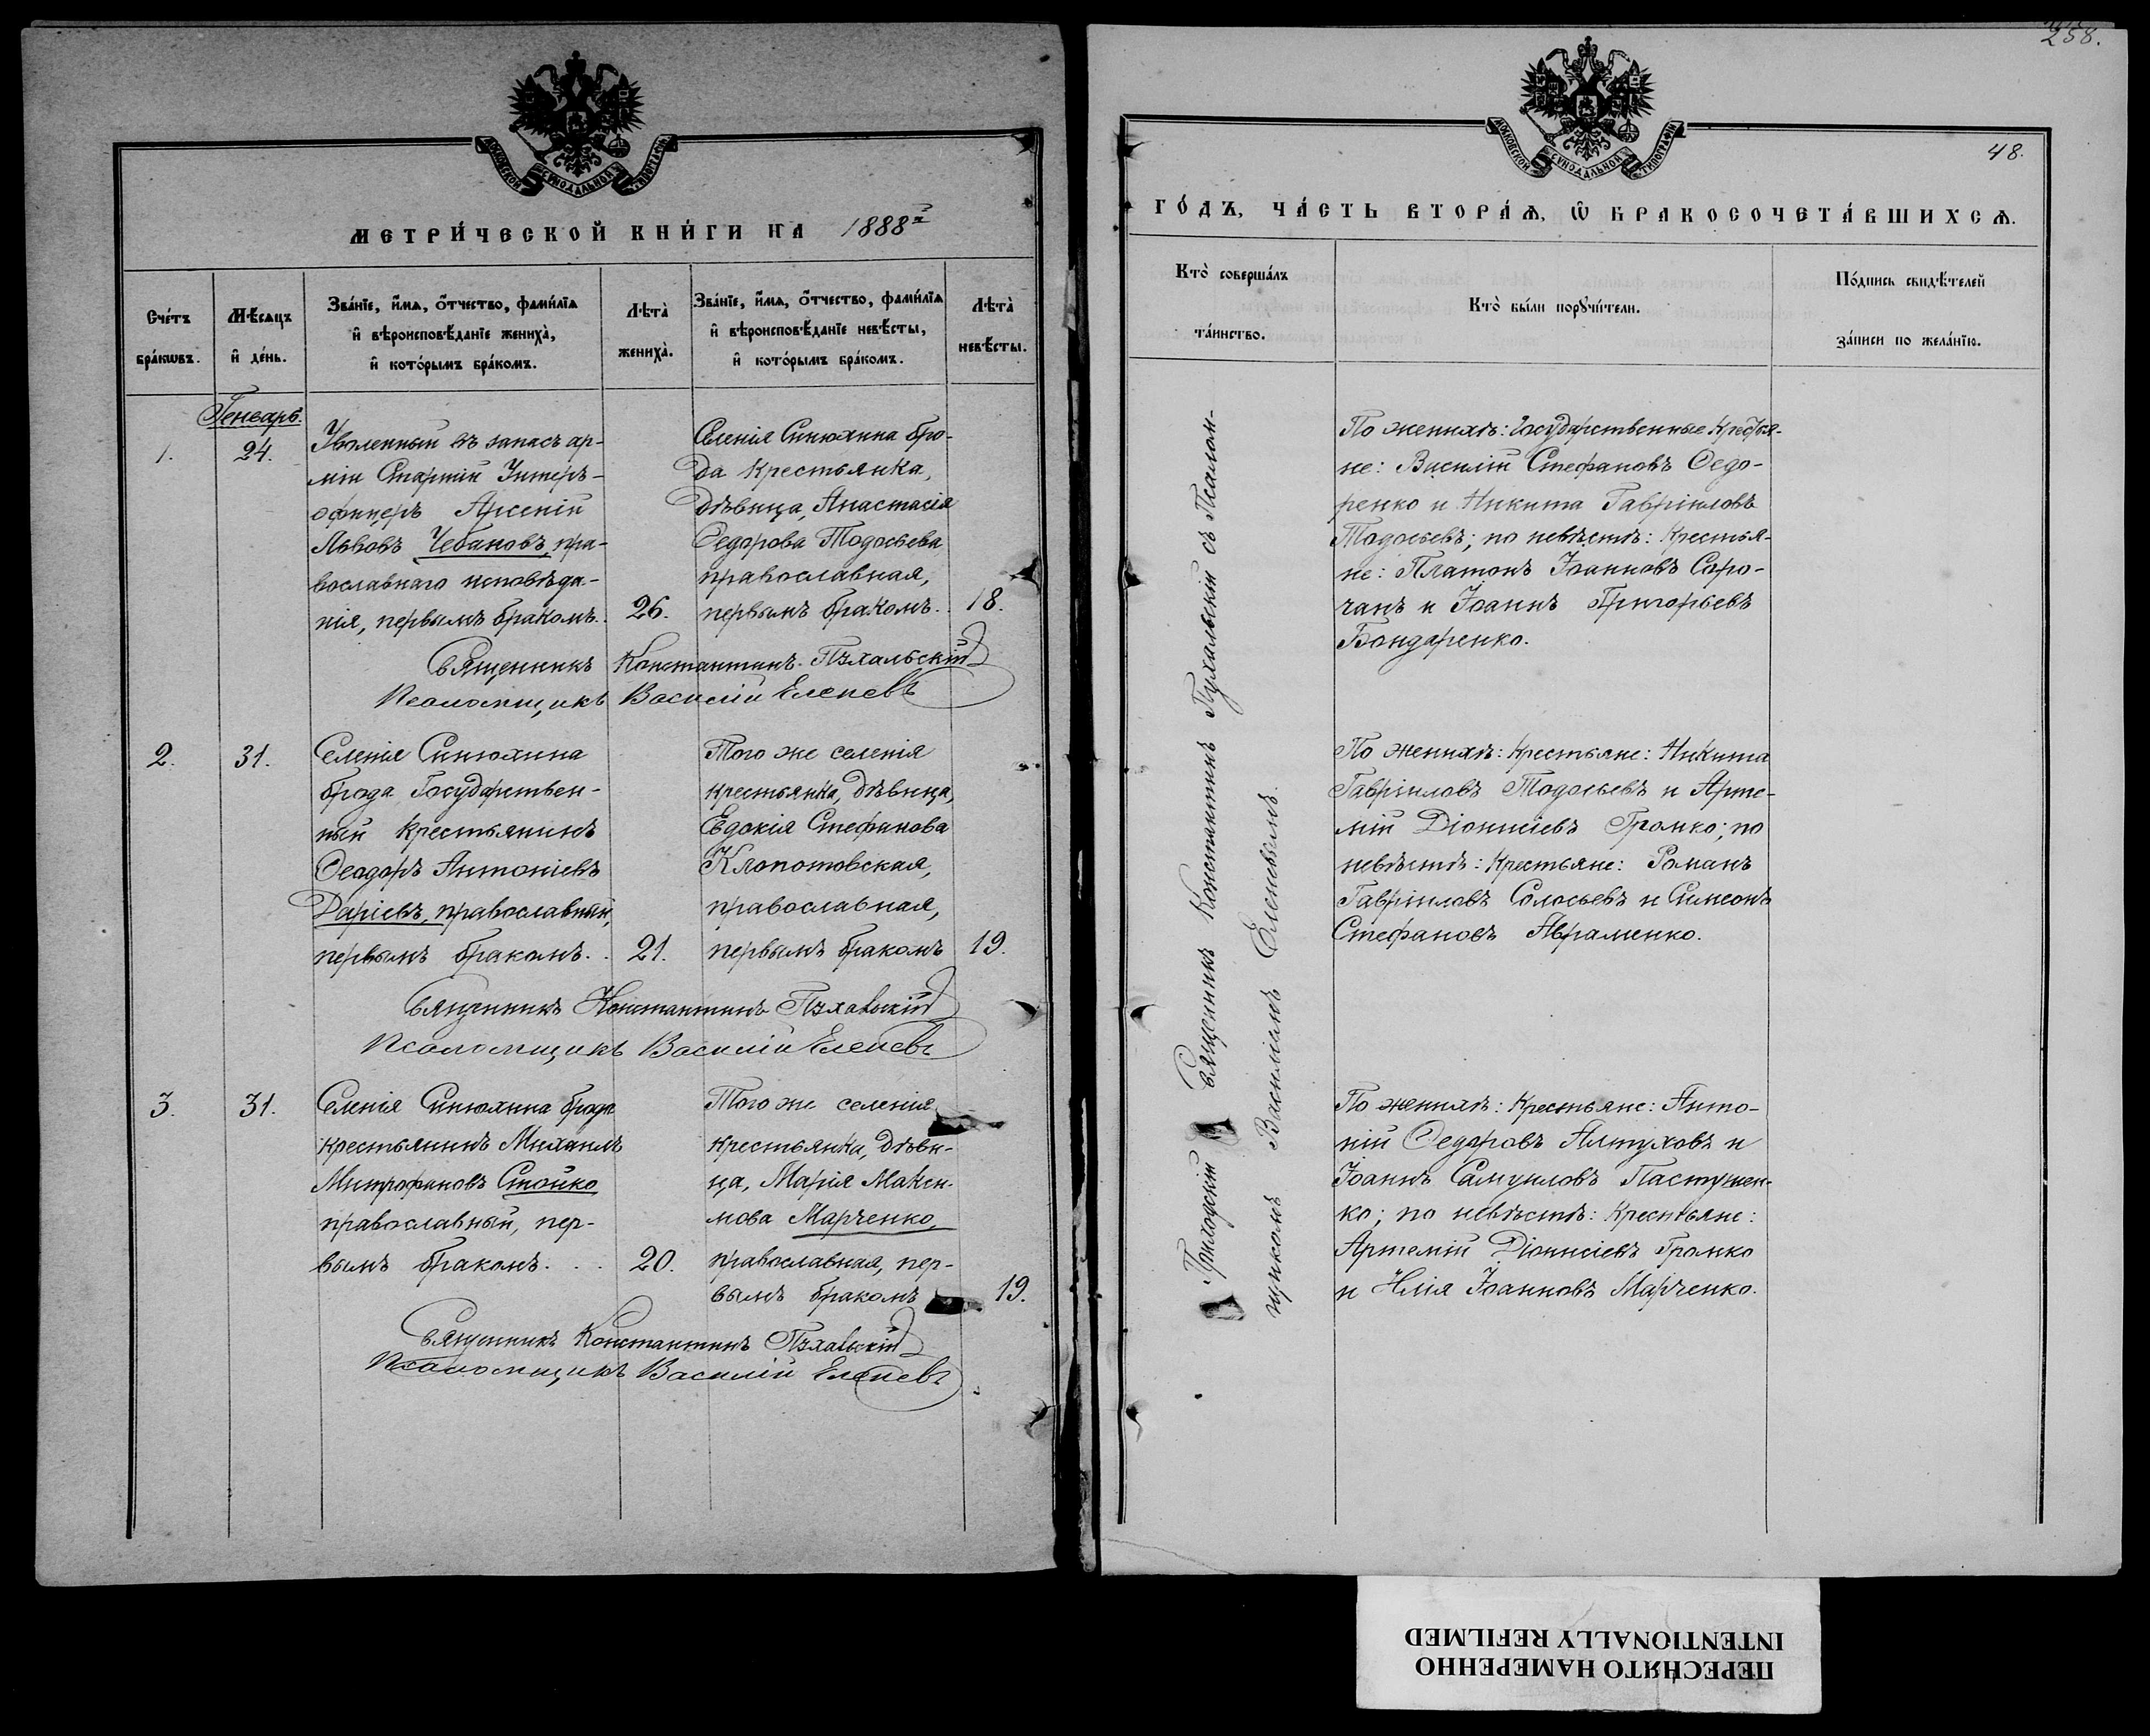 МОСКОВСКОЙ СѴНОДАЛЬНОЙ ТИПОГРАФІИ
МЕТРИ́ЧЕСКОЙ КНИ́ГИ НА 1888й
Сче́тъ бра́кѡвъ.
Мѣ́сяцъ и҆ де́нь.
Зва́нїе, и҆́мѧ, ѻ҆́тчество, фами́лїѧ
и҆ вѣроисповѣ́данїе жениха̀,
и҆ кото́рымъ бра́комъ.
Лѣта̀ жениха̀.
Зва́нїе, и҆́мѧ, ѻ҆́тчество, фами́лїѧ
и҆ вѣроисповѣ́данїе невѣ́сты,
и҆ кото́рымъ бра́комъ.
Лѣта̀ невѣ́сты.
Генварь.
1.
24.
Уволенный въ запасъ ар-
міи Старшій Унтеръ-
офицеръ Арсеній
Львовъ Чебановъ, пра-
вославнаго исповѣда-
нія, первымъ бракомъ.
26.
Селенія Синюхина бро-
да крестьянка,
дѣвица, Анастасія
Ѳедорова Тодосьева
православная,
первымъ бракомъ.
18.
Священникъ Константинъ Пухальскій
Псаломщикъ Василій Еленевъ
2.
31.
Селенія Синюхина
брода Государствен-
ный крестьянинъ
Ѳеодоръ Антоніевъ
Даріевъ, православный,
первымъ бракомъ.
21.
Того же селенія
крестьянка, дѣвица,
Евдокія Стефанова
Клопотовская,
православная,
первымъ бракомъ
19.
Священникъ Константинъ Пухальскій
Псаломщикъ Василій Еленевъ
3.
31.
Селенія Синюхина брода
крестьянинъ Михаилъ
Митрофановъ Стойко
православный, пер-
вымъ бракомъ. . .
20.
Того же селенія
крестьянка, дѣви-
ца, Марія Макси-
мова Марченко,
православная, пер-
вымъ бракомъ
19.
Священникъ Константинъ Пухальскій
Псаломщикъ Василій Еленевъ
258.
МОСКОВСКОЙ СѴНОДАЛЬНОЙ ТИПОГРАФІИ
48.
ГО́ДЪ, ЧА́СТЬ ВТОРА́Ѧ, Ѽ БРАКОСОЧЕТА́ВШИХСѦ.
Кто̀ соверша́лъ
та́инство.
Кто̀ бы́ли порꙋчи́тели.
По́дпись свидѣ́телей
за́писи по жела́нїю.
Приходскій Священникъ Константинъ Пухальскій съ Псалом-
щикомъ Василіемъ Еленевымъ.
По женихѣ: Государственные крестья-
не: Василій Стефановъ Ѳедо-
ренко и Никита Гавріиловъ
Тодосьевъ; по невѣстѣ: крестья-
не: Платонъ Іоанновъ Соро-
чанъ и Іоаннъ Григорьевъ
Бондаренко.
По женихѣ: крестьяне: Никита
Гавріиловъ Тодосьевъ и Арте-
мій Діонисіевъ Громко; по
невѣстѣ: крестьяне: Романъ
Гавріиловъ Солосьевъ и Симеонъ
Стефановъ Авраменко.
По женихѣ: крестьяне: Анто-
ній Ѳедоровъ Алтуховъ и
Іоаннъ Самуиловъ Пастушен-
ко; по невѣстѣ: крестьяне:
Артемій Діонисіевъ Громко
и Илія Іоанновъ Марченко.
ПЕРЕСНЯТО НАМЕРЕННО
INTENTIONALLY REFILMED